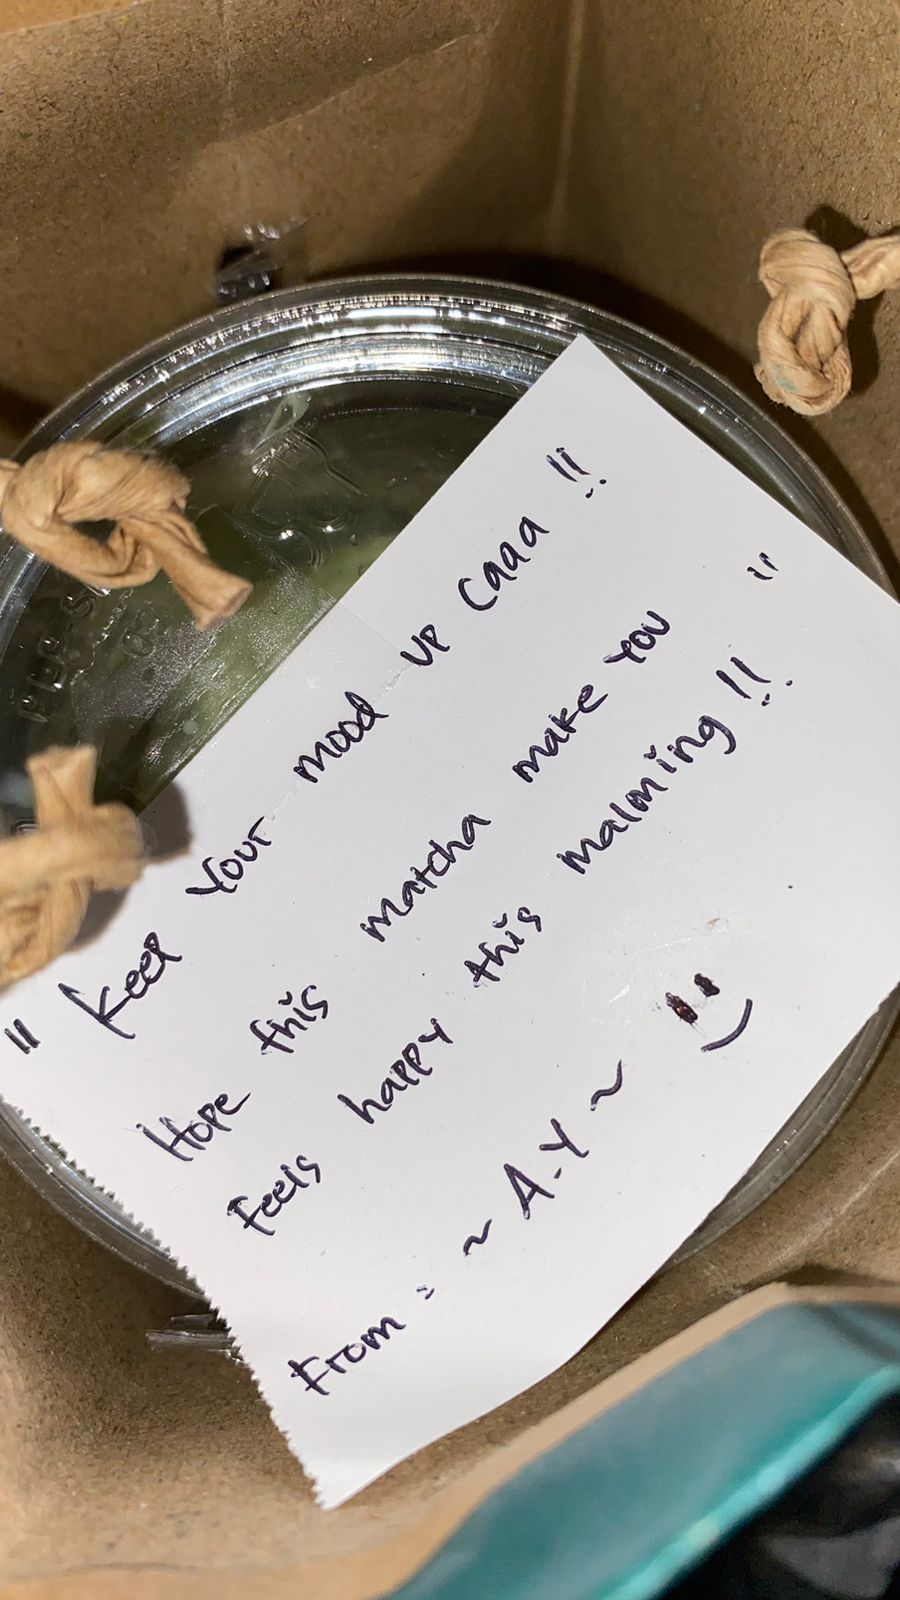 " Keep Your mood up Caaa !!
Hope this matcha make you "
Feels happy this malming !!
From : ~ A-Y ~